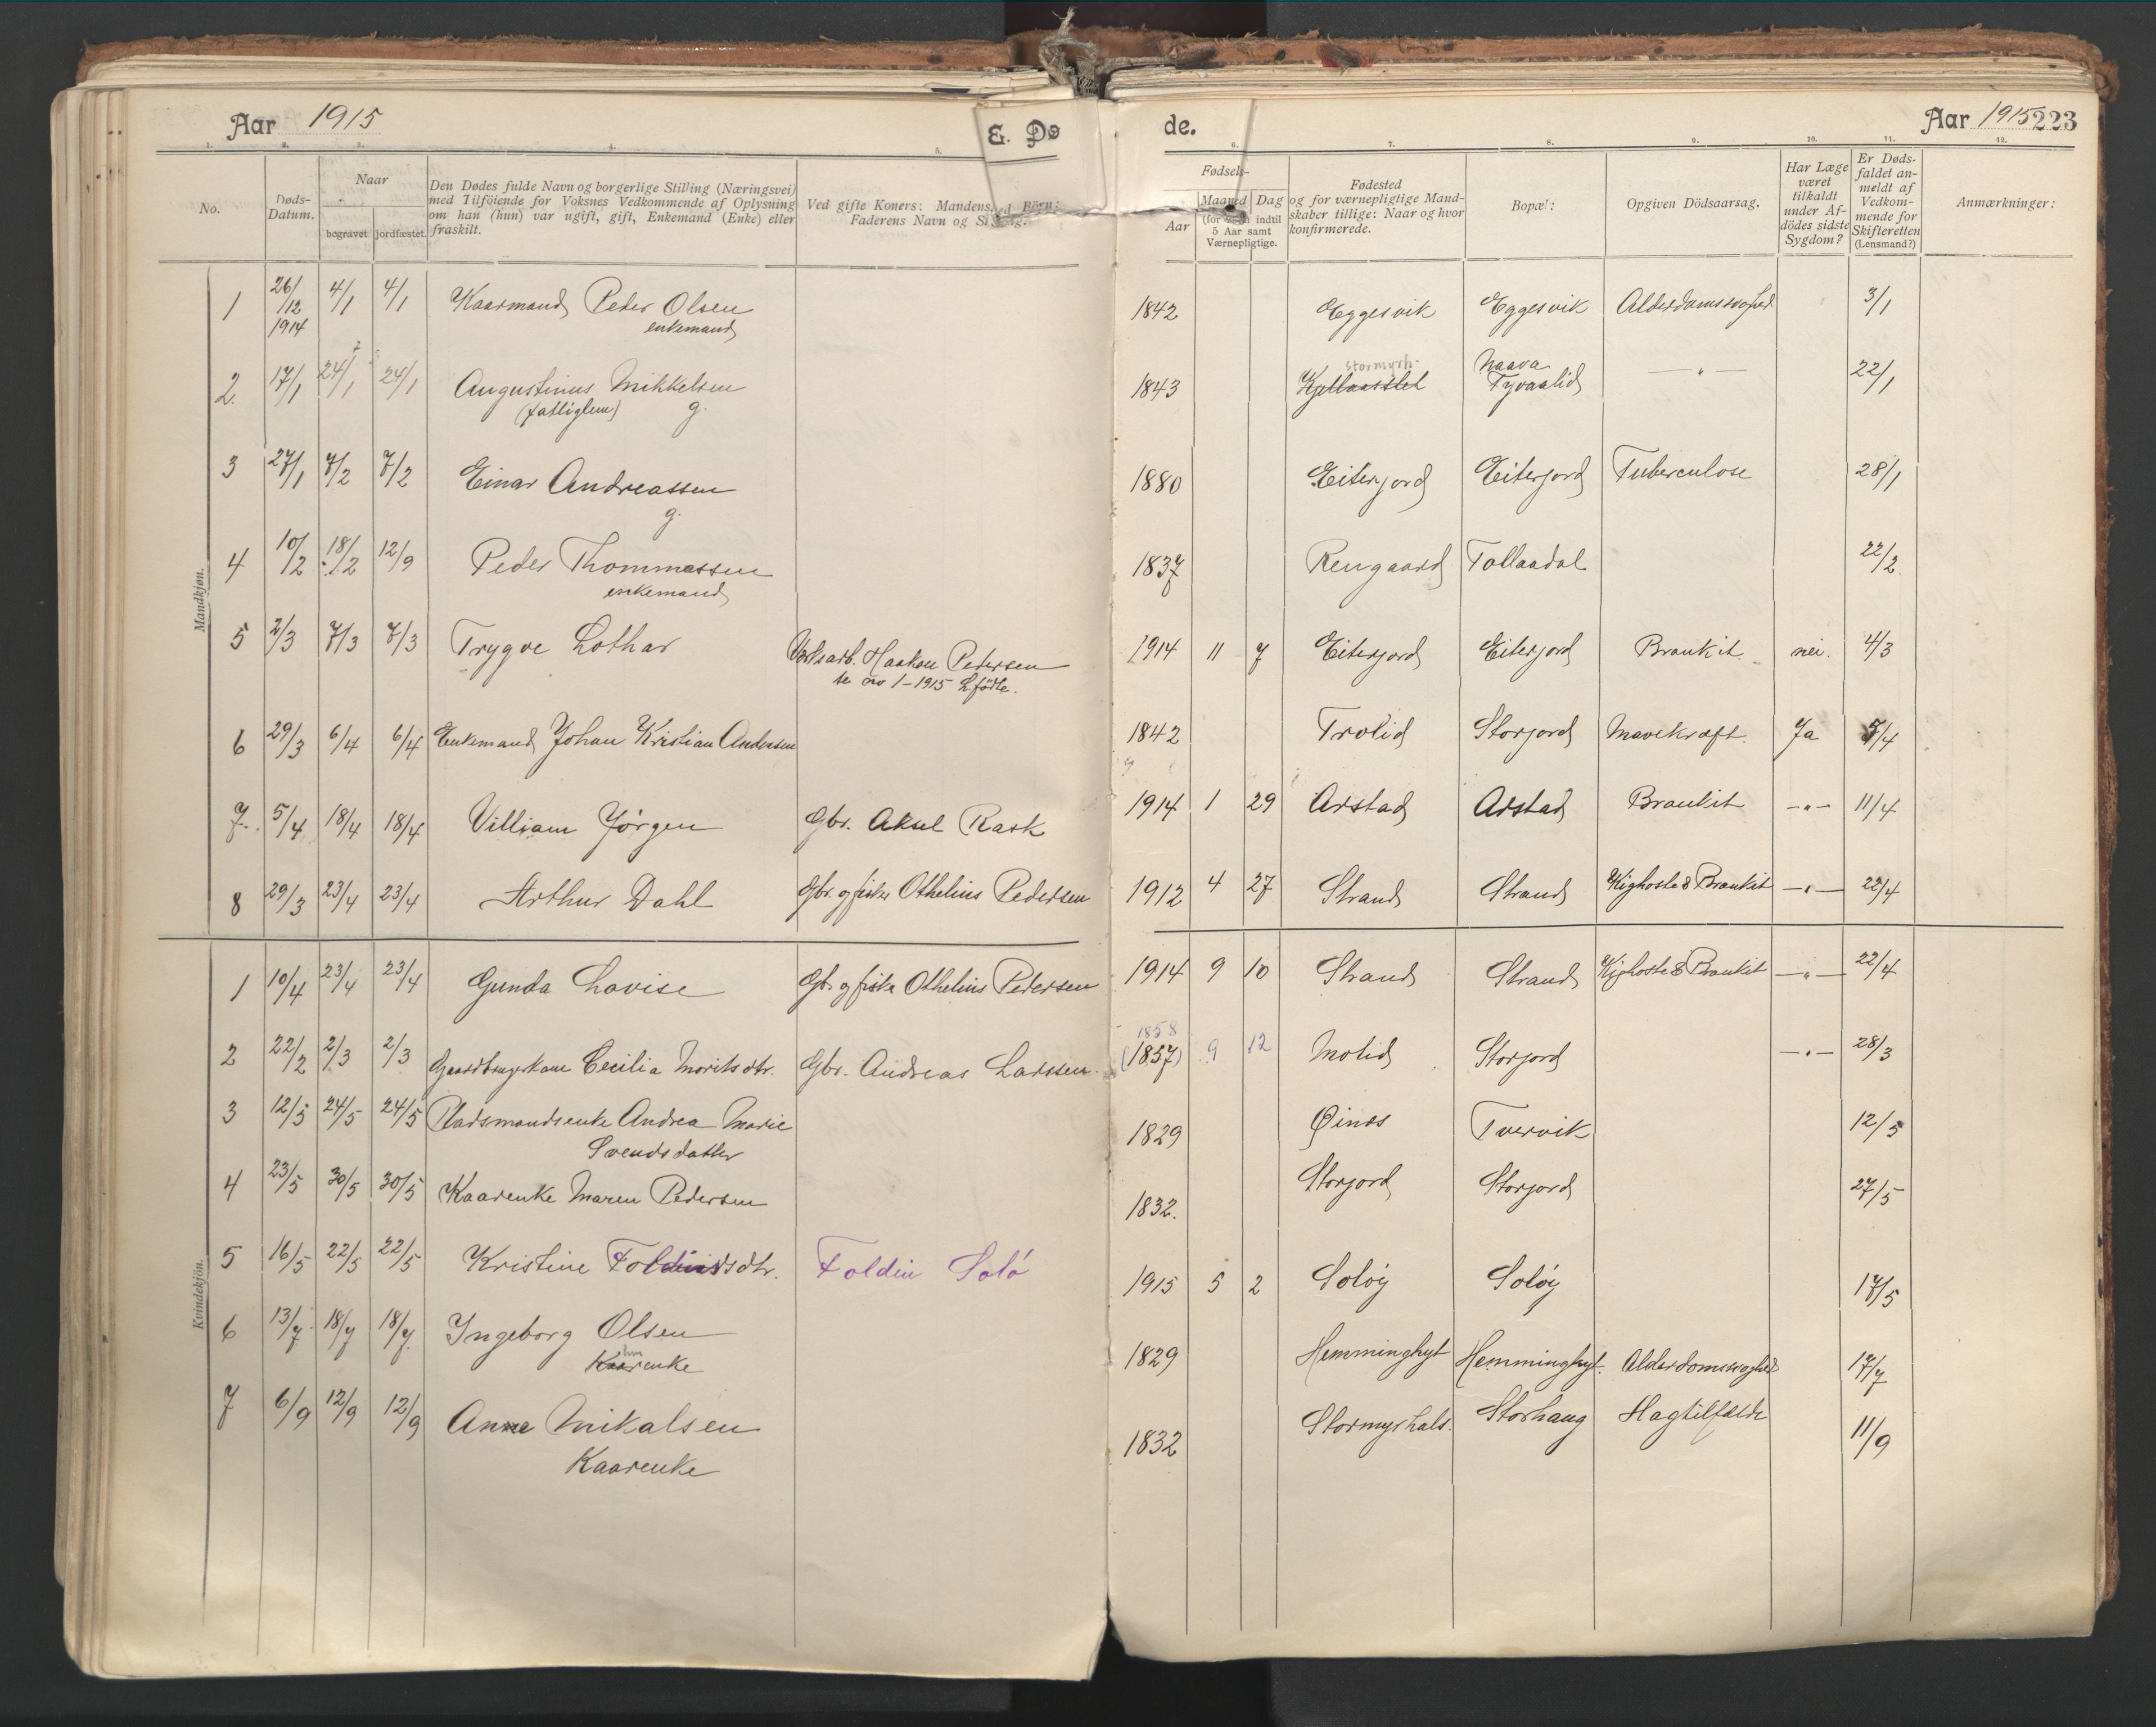 Aar 1915
E. Dø
de.
Aar 1915 223
1. 2. 3. 4. 5. 6. 7. 8. 9. 10. 11. 12.
No.
Døds-
Datum.
Naar
begravet jordfæstet.
Den Dødes fulde Navn og borgerlige Stilling (Næringsvei)
med Tilföiende for Voksnes Vedkommende af Oplysning
om han (hun) var ugift, gift, Enkemand (Enke) eller
fraskilt.
Ved gifte Koners: Mandens, ved Börn:
Faderens Navn og Stilling.
Fødsels-
Aar
Maaned Dag
(for Börn indtil
5 Aar samt
Værnepligtige.
Fødested
og for værnepligtige Mand-
skaber tillige: Naar og hvor
konfirmerede.
Bopæl:
Opgiven Dödsaarsag.
Har Læge
været
tilkaldt
under Af-
dödes sidste
Sygdom?
Er Døds-
faldet an-
meldt af
Vedkom-
mende for
Skifteretten
(Lensmand?)
Anmærkninger:
Mandkjøn.
1 26/12 1914 4/1 4/1 Kaarmand Peder Olsen 1842 Eggesvik Eggesvik Alderdomssvaghed 3/1
enkemand
Stormyrh.
Naava
2. 17/1 24/1 24/1 Augustinus Mikkelsen 1843 Tyvaalid — " — 22/1
(fattiglem) g.
3 27/1 7/2 7/2 Einar Andreassen 1880 Eiterjord Eiterjord Tuberculose 28/1
g.
4 10/2 18/2 12/9 Peder Thommassen 1837 Rengaard Tollaadal 22/2.
enkemand
5 2/3 7/3 7/3 Trygve Lothar Verksarb. Haakon Petersen 1914 11 7 Eiterjord Eiterjord Bronkit. nei. 4/3
se no 1-1915 fødte.
6 29/3 6/4 6/4 Enkemand Johan Kristian Andersen 1842 Trolid Storjord Mavekræft. Ja 5/4
7. 5/4 18/4 18/4 Villiam Jørgen Gbr. Aksel Rask 1914 1 29 Arstad Arstad Bronkit — " — 11/4
8 29/3 23/4 23/4 Arthur Dahl Gbr. og fisker Othelius Pedersen 1912 4 27 Strand Strand Kighoste & Bronkit — " — 22/4
Kvindekjön.
1 10/4 23/4 23/4 Gunda Lovise Gbr. og fisker Othelius Pedersen 1914 9 10 Strand Strand Kighoste & Bronkit — " — 22/4
1858
2 22/2 2/3 2/3 Gaardbrugerkone Cecilia Moritsdtr. Gbr. Andreas Larssen. (1857) 9 12 Molid Storjord — " — 28/3
3 12/5 24/5 24/5 Pladsmandsenke Andrea Marie 1829 Øines Tvervik 12/5
Svendsdatter
4 23/5 30/5 30/5 Kaarenke Maren Pedersen 1832. Storjord Storjord 27/5
5 16/5 22/5 22/5 Kristine Foldinsdtr. Foldin Solö 1915 5 2 Soløy Soløy 17/5
6 13/7 18/7 18/7. Ingeborg Olsen 1829 Hemminghyt Hemminghyt. Alderdomssvaghed 17/7
Kaarenke
7 6/9 12/9 12/9 Anna Mikalsen 1832 Stormyrhals. Storhaug Slagtilfælde 11/9
Kaarenke